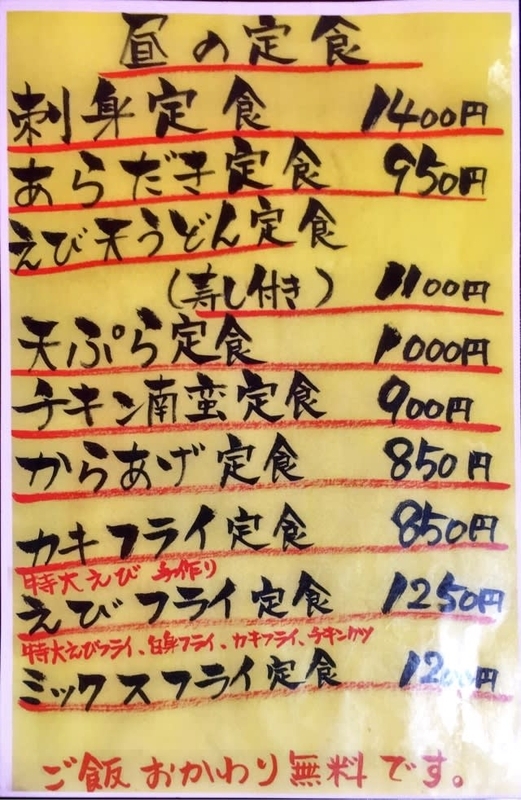 昼の定食
刺身定食 1400円
あらだき定食 950円
えび天うどん定食
(寿し付き) 1100円
天ぷら定食 1000円
チキン南蛮定食 900円
からあげ定食 850円
カキフライ定食 850円
特大えび 手作り
えびフライ定食 1250円
特大えびフライ、白身フライ、カキフライ、チキンカツ
ミックスフライ定食 1200円
ご飯おかわり無料です。